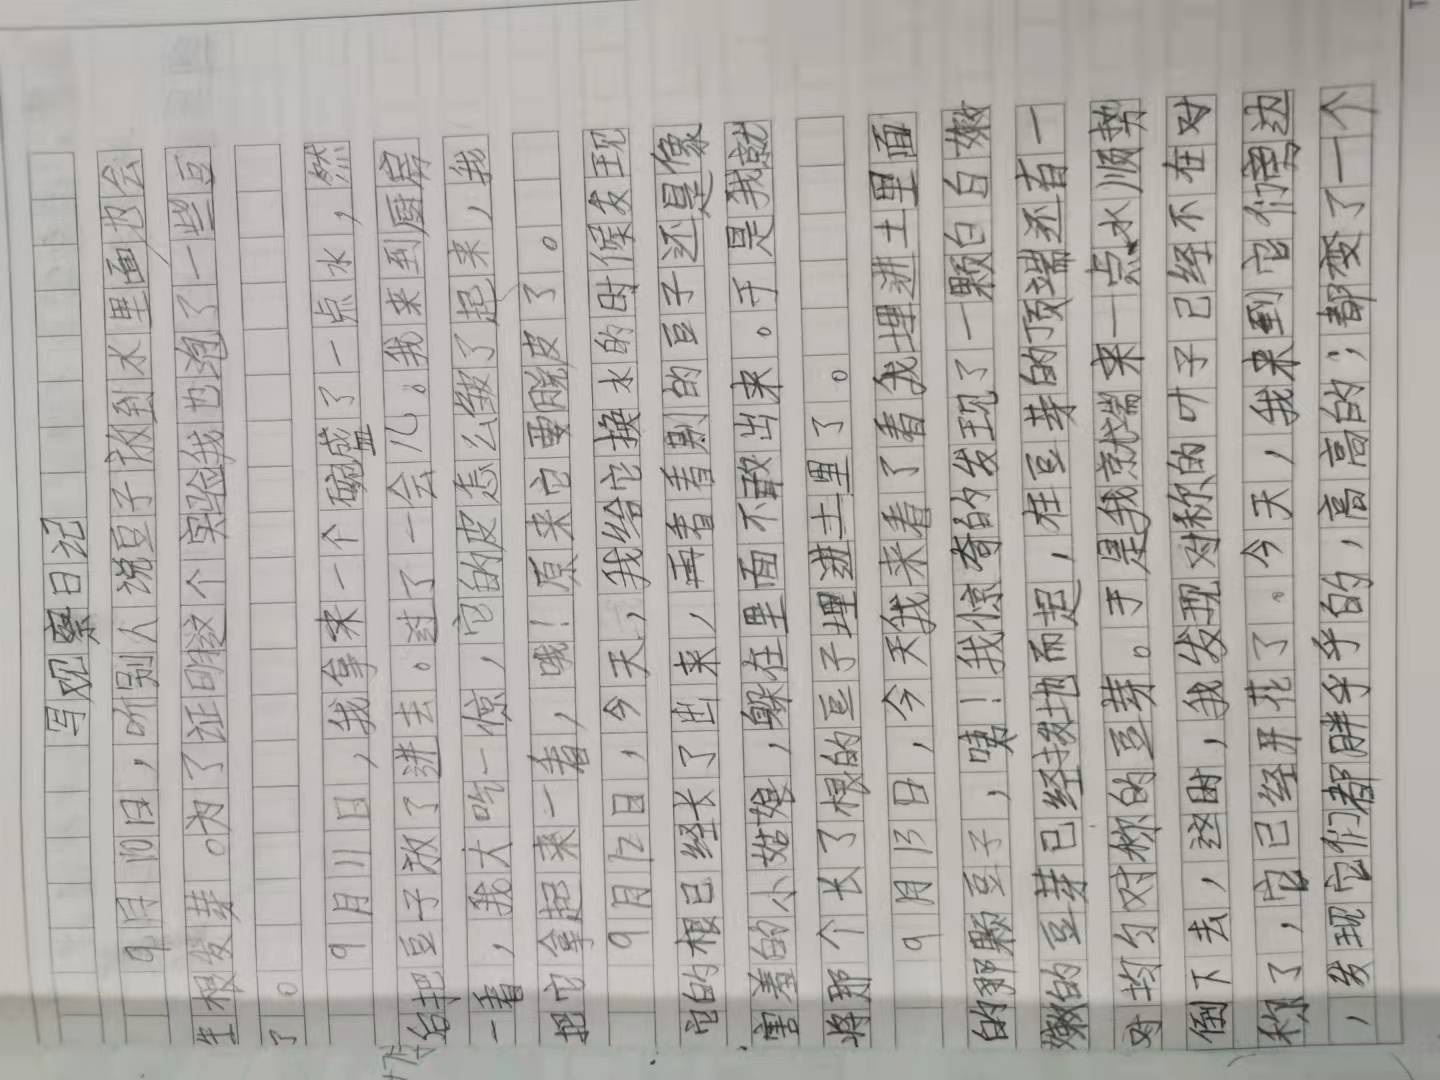 写观察日记
9月10日，听别人说豆子放到水里面也会
生根发芽。为了证明这个实验我也泡了一些豆
了。
9月11日，我拿来一个碗盛了一点水，然
后把豆子放了进去。过了一会儿。我来到厨房
一看，我大吃一惊，它的皮怎么皱了起来，我
把它拿起来一看，哦！原来它要脱皮了。
9月12日，今天，我给它换水的时候发现
它的根已经长了出来，再看看别的豆子还是像
害羞的小姑娘，躲在里面不敢出来。于是我就
将那个长了根的豆子埋进土里了。
9月13日，今天我来看了看我埋进土里面
的那颗豆子，咦！我惊奇的发现了一颗白白嫩
嫩的豆芽已经拔地而起，在豆芽的顶端还有一
对均匀对称的豆芽。于是我就端来一点水顺势
倒下去，这时，我发现对称的叶子已经不在对
称了，它已经开花了。今天，我来到它们旁边
，发现它们都胖乎乎的，高高的；都变了一个